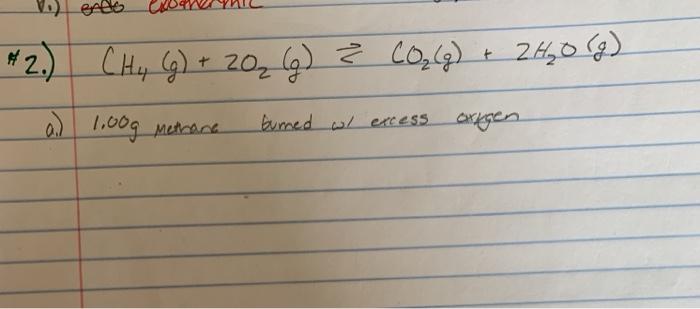 v.) endo exothermic
#2.) CH₄ (g) + 2O₂ (g) ⇌ CO₂(g) + 2H₂O (g)
a.) 1.00g Methane burned w/ excess oxygen